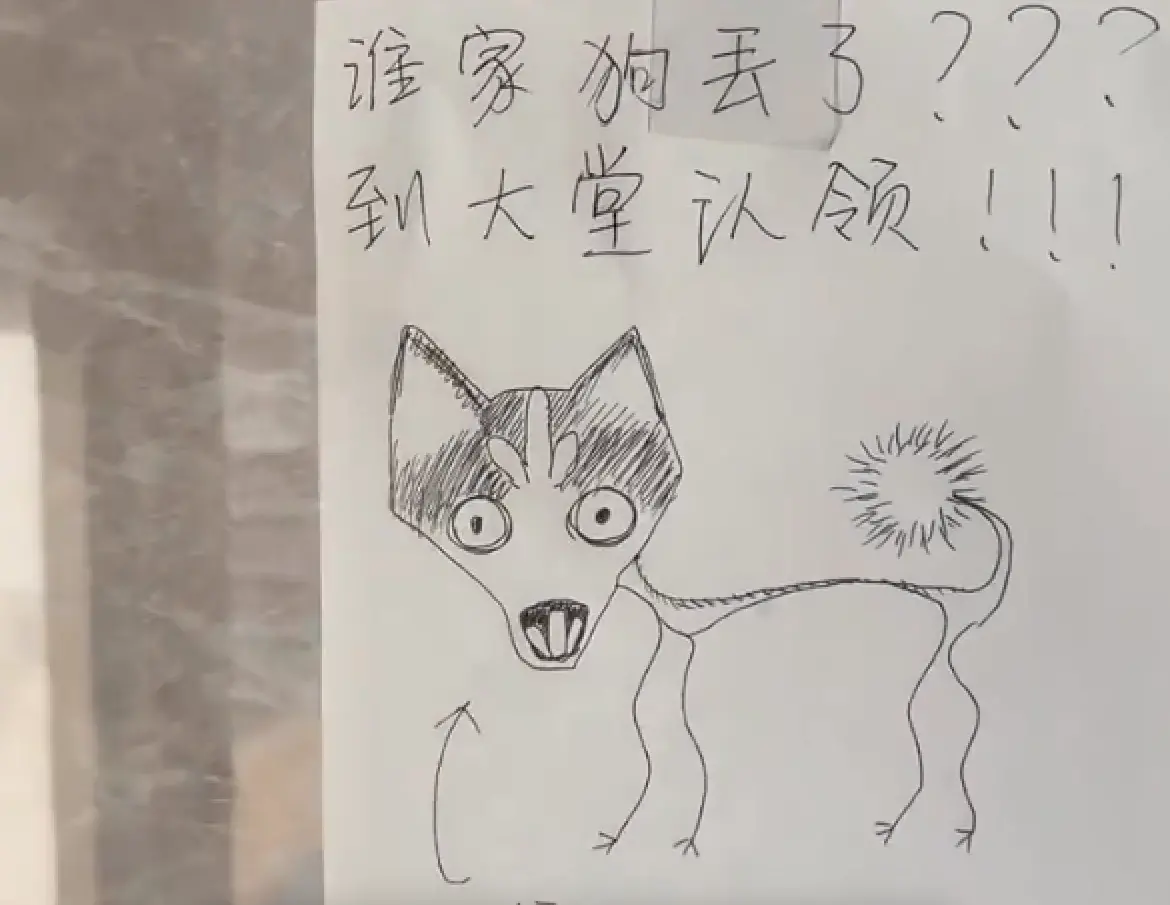 谁家狗丢了???
到大堂认领!!!